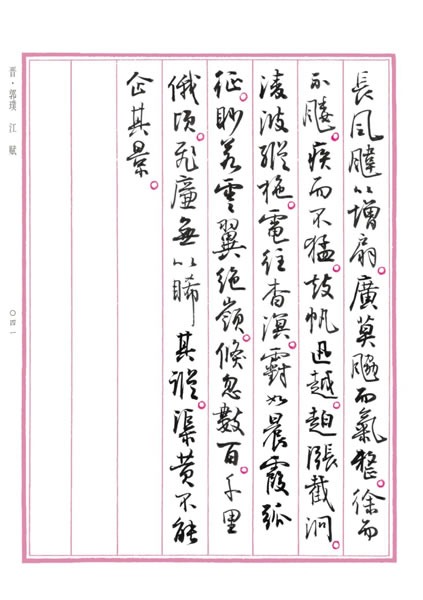 長風䬙以增扇。廣莫䬅而氣整。徐而
不䬐。疾而不猛。鼓帆迅越。趠漲截泂。
淩波縱柂。電往杳溟。䨴如晨霞孤
征。眇若雲翼絕嶺。倏忽數百。千里
俄頃。飛廉無以睎其蹤。渠黃不能
企其景。
晉·郭璞 江賦
〇四一